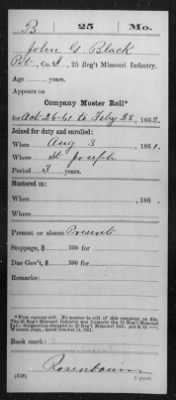 B | 25 | Mo.
John G Black
Pvt, Co. I, 25 Reg't Missouri Infantry.
Age years.
Appears on
Company Muster Roll*
for Oct 26-61 to Feby 28, 1862.
Joined for duty and enrolled:
When Aug 3, 1861.
Where St Joseph
Period 3 years.
Mustered in:
When , 186 .
Where
Present or absent Present
Stoppage, $ 100 for
Due Gov't, $ 100 for
Book mark:
Rosenbaum
(858) Copyist.